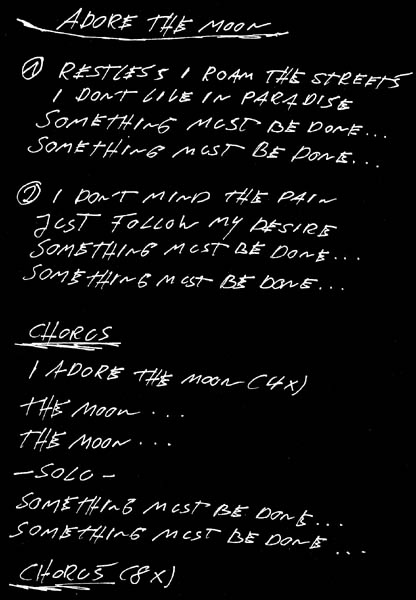 ADORE THE MOON
① RESTLESS I ROAM THE STREETS
I DON'T LIVE IN PARADISE
SOMETHING MUST BE DONE...
SOMETHING MUST BE DONE...
② I DON'T MIND THE PAIN
JUST FOLLOW MY DESIRE
SOMETHING MUST BE DONE...
SOMETHING MUST BE DONE...
CHORUS
I ADORE THE MOON (4X)
THE MOON...
THE MOON...
- SOLO -
SOMETHING MUST BE DONE...
SOMETHING MUST BE DONE...
CHORUS (8X)